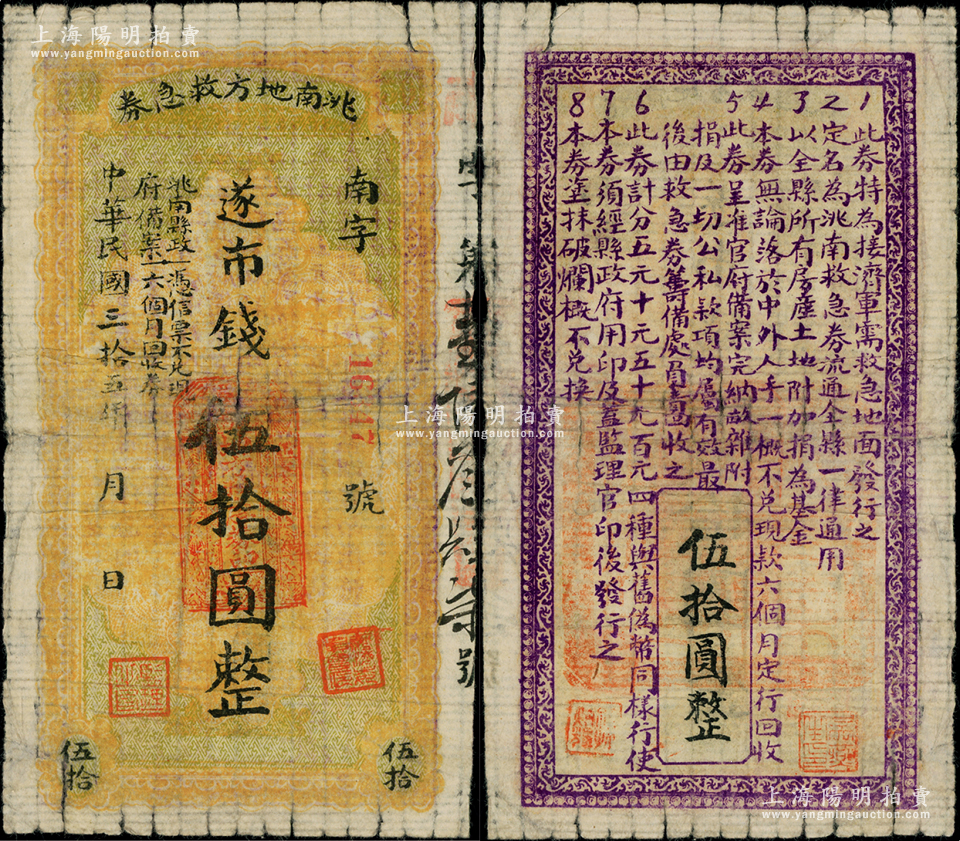 上海陽明拍賣
www.yangmingauction.com
洮南地方救急券
南字
16 17
號
遂市錢
伍拾圓整
洮南縣政
府備案
憑信票不兌現
六個月回收券
中華民國三拾五年 月 日
伍拾
伍拾
字第壹
號
上海陽明拍賣
www.yangmingauction.com
1 此券特為接濟軍需救急地面發行之
2 定名為洮南救急券流通全縣一律通用
3 以全縣所有房產土地附加捐為基金
4 本券無論落於中外人手一概不兌現款六個月定行回收
5 此券呈准官府備案完納畝雜附
捐及一切公私款項均屬有效最
後由救急券籌備處員責收之
6 此券計分五元十元五十元百元四種與舊偽幣同樣行使
7 本券須經縣政府用印及蓋監理官印後發行之
8 本券塗抹破爛概不兌換
伍拾圓整
上海陽明拍賣
www.yangmingauction.com
上海陽明拍賣
www.yangmingauction.com